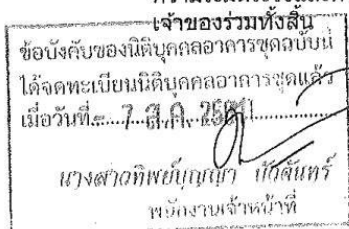 เจ้าของร่วมทั้งสิ้น
ข้อบังคับของนิติบุคคลอาคารชุดฉบับนี้
ได้จดทะเบียนนิติบุคคลอาคารชุดแล้ว
เมื่อวันที่ 7 ส.ค.
นางสาวทิพย์บุญญา บัวจันทร์
พนักงานเจ้าหน้าที่